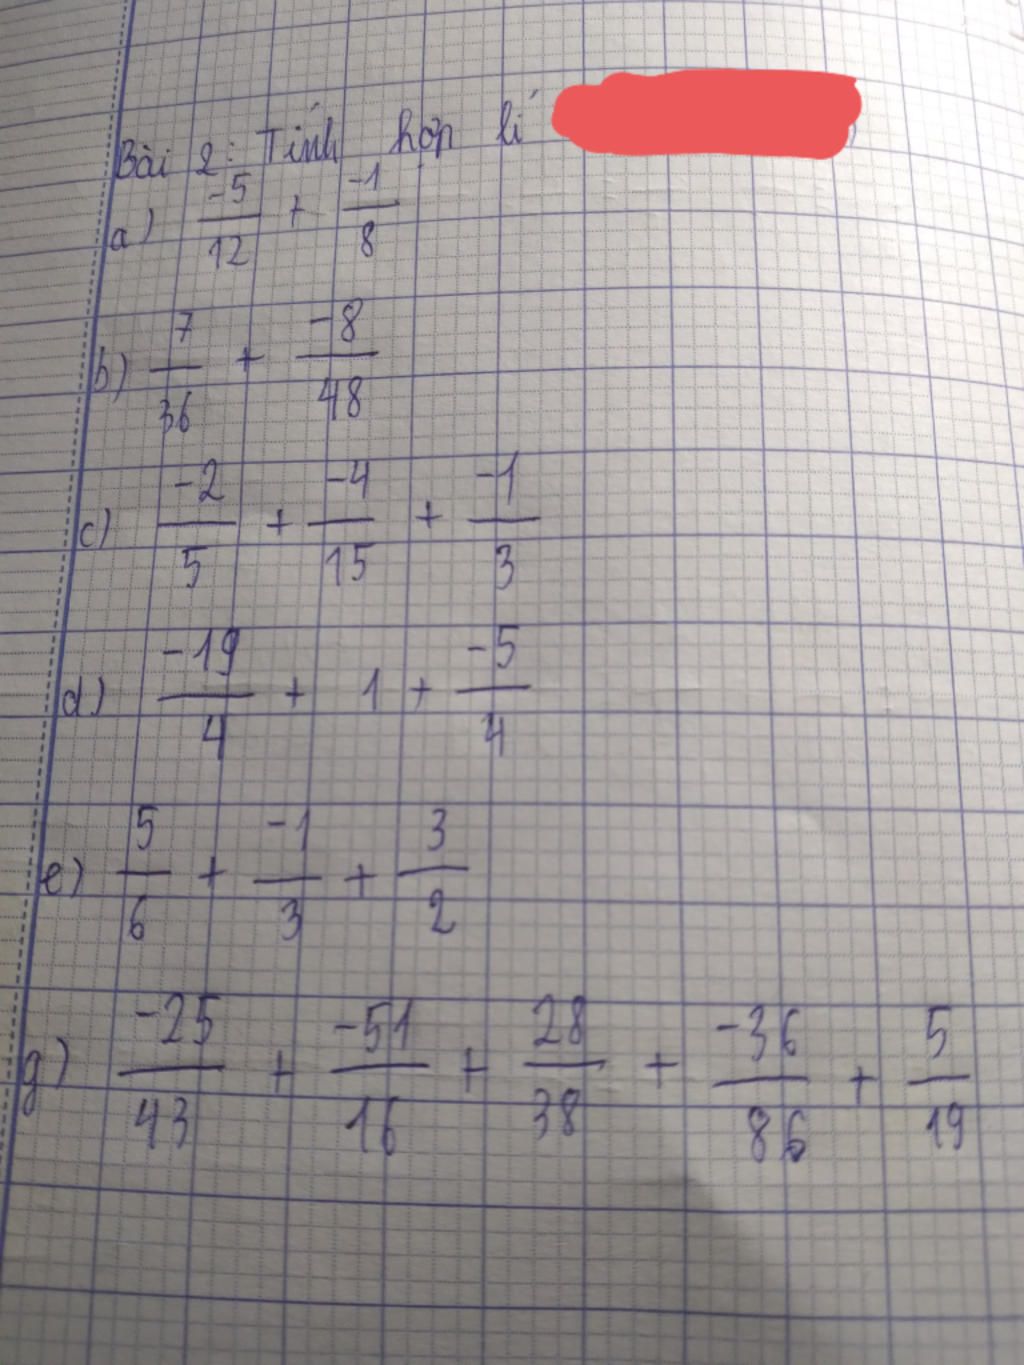 Bài 2: Tính hợp lí
a) -5/12 + -1/8
b) 7/36 + -8/48
c) -2/5 + -4/15 + -1/3
d) -19/4 + 1 + -5/4
e) 5/6 + -1/3 + 3/2
g) -25/43 + -51/16 + 28/38 + -36/86 + 5/19